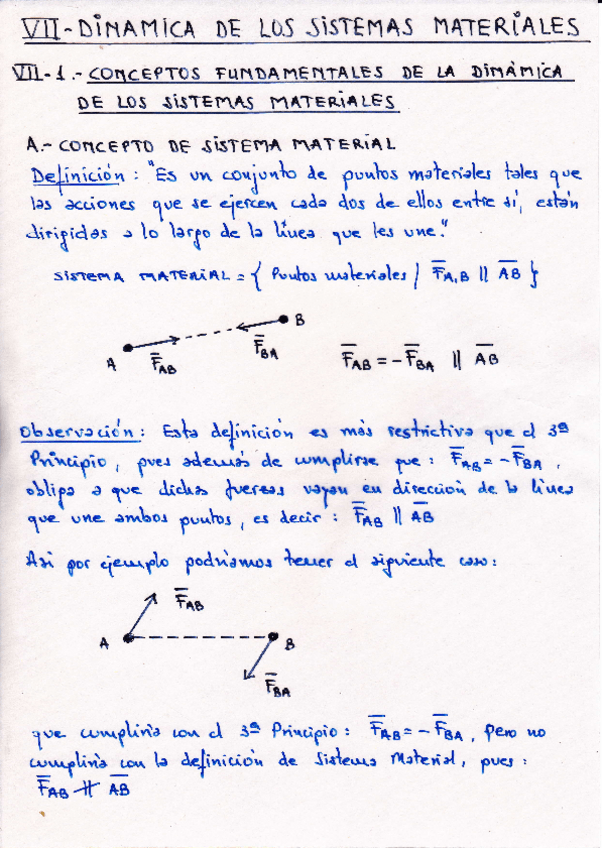 VII-DINAMICA DE LOS SISTEMAS MATERIALES
VII-1.-CONCEPTOS FUNDAMENTALES DE LA DINÁMICA
DE LOS SISTEMAS MATERIALES
A.- CONCEPTO DE SISTEMA MATERIAL
Definición: "Es un conjunto de puntos materiales tales que
las acciones que se ejercen cada dos de ellos entre sí, están
dirigidas a lo largo de la línea que les une."
SISTEMA MATERIAL = { Puntos materiales / F̅A,B || A̅B̅ }
A F̅AB F̅BA B
F̅AB = -F̅BA || A̅B̅
Observación: Esta definición es más restrictiva que el 3º
Principio, pues además de cumplirse que: F̅AB = -F̅BA,
obliga a que dichas fuerzas vayan en dirección de la línea
que une ambos puntos, es decir: F̅AB || A̅B̅
Así por ejemplo podríamos tener el siguiente caso:
F̅AB
A B
F̅BA
que cumpliría con el 3º Principio: F̅AB = -F̅BA, pero no
cumpliría con la definición de Sistema Material, pues:
F̅AB ∦ A̅B̅